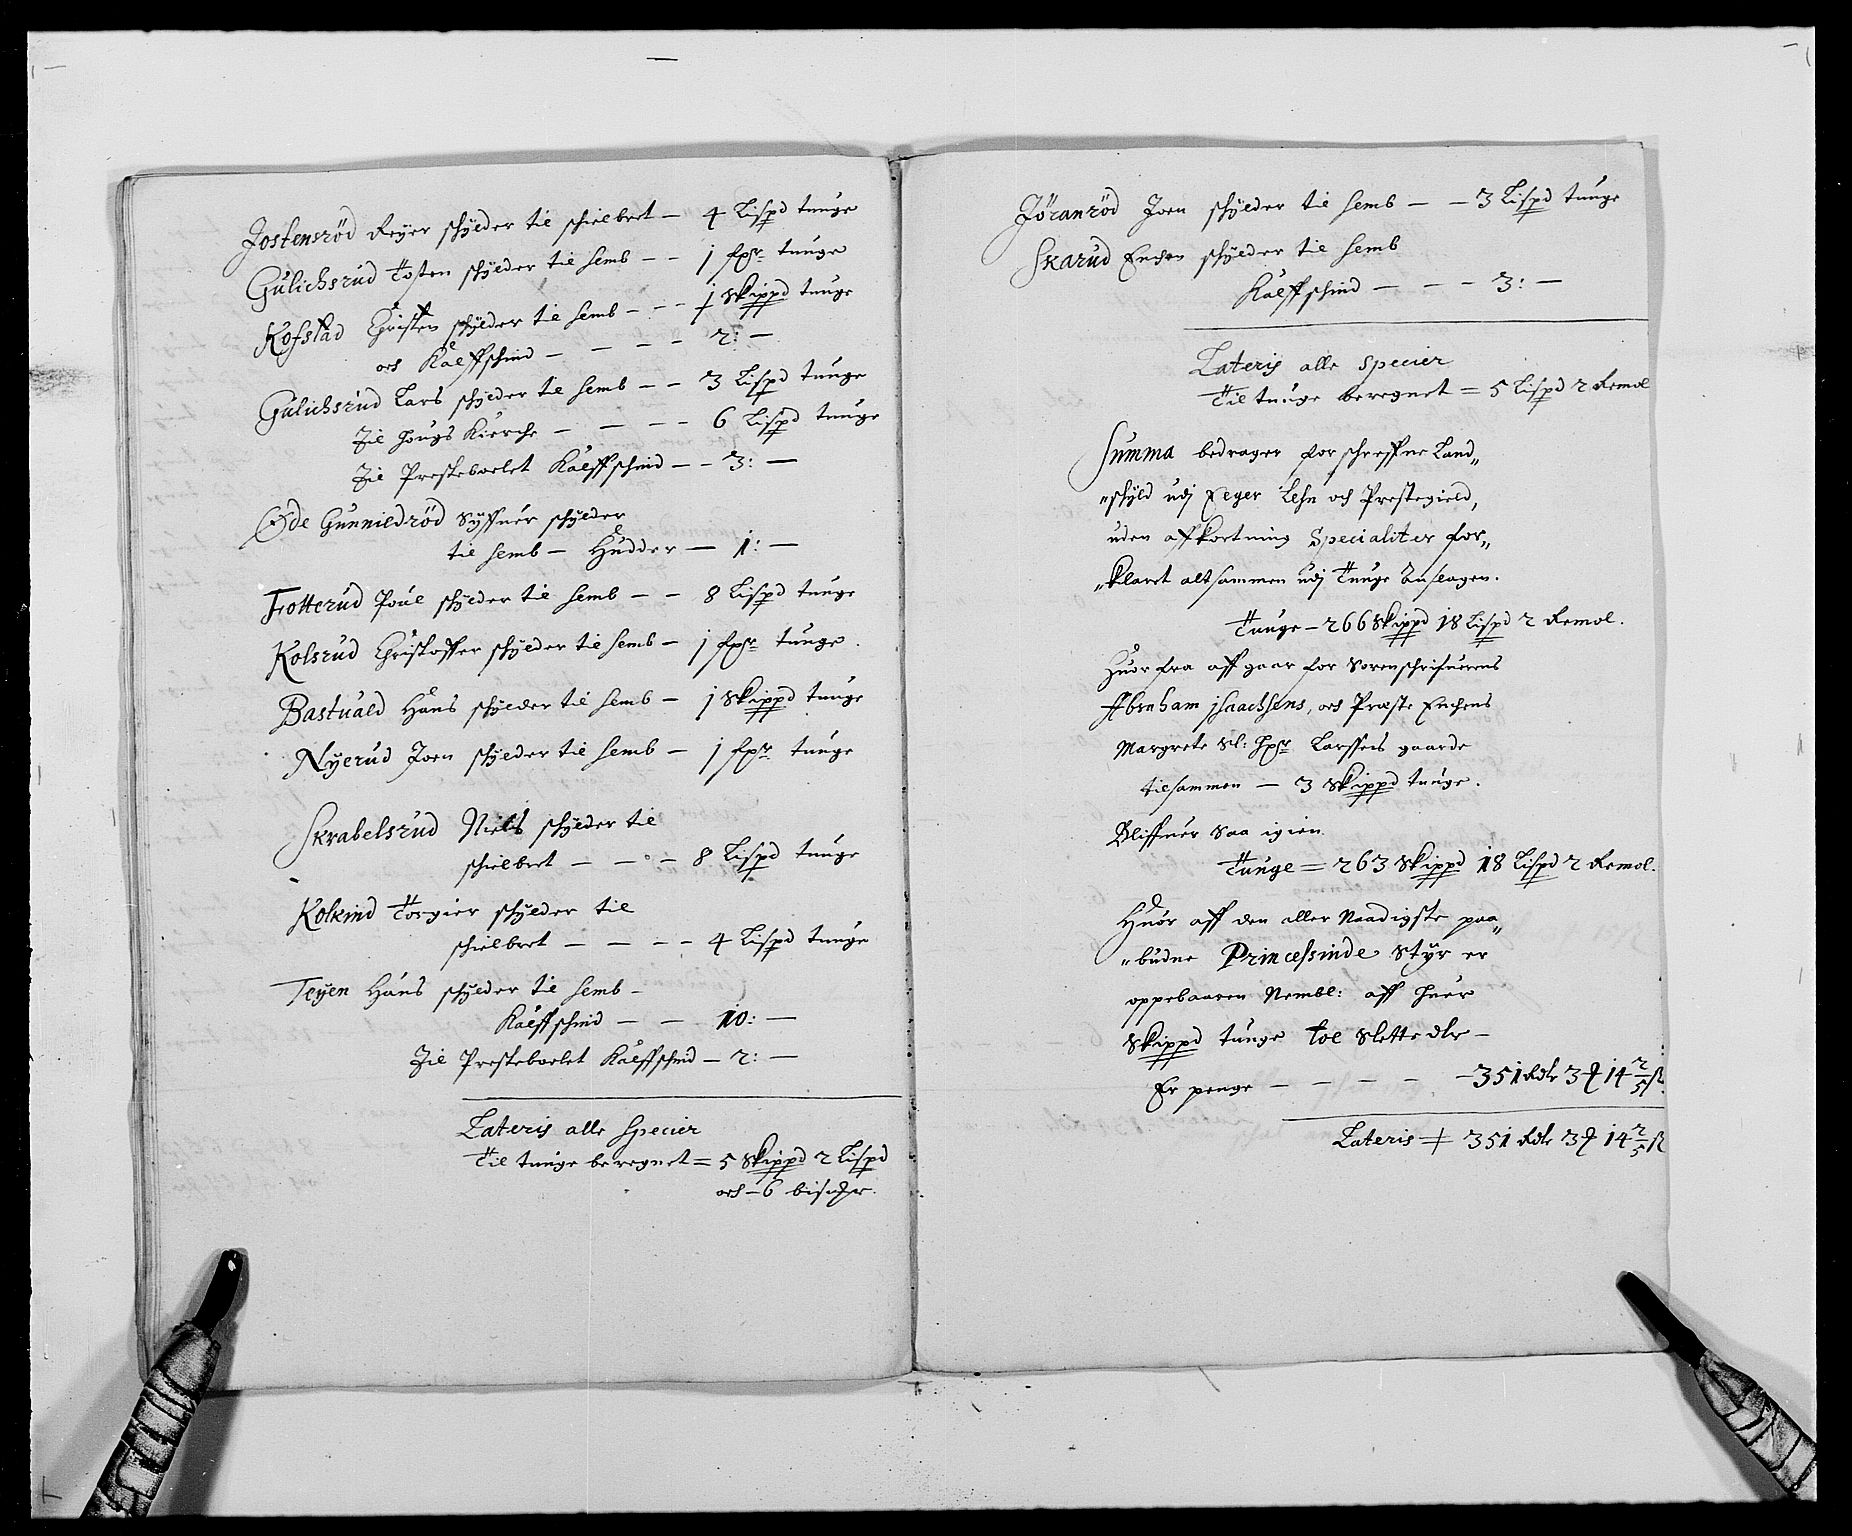 Jostensrød Reyer schylder til schielbret — 4 Lispd tunge
Gulichsrud Tosten schylder til Semb — — 1 fr tunge
Kofstad Christen schylder til Semb — — 1 Skippd tunge
och Kalffschind — — — — 2: —
Gulichsrud Lars schylder til Semb — — 3 Lispd tunge
Til Hougs Kierche — — — — 6 Lispd tunge
Til Presteboelet Kalffschind — — 3: —
Øde Gunnildrød Syffuer schylder
til Semb — Hudder — 1: —
Trotterud Poul schylder til Semb — — 8 Lispd tunge
Kolsrud Christoffer schylder til Semb — 1 fr tunge.
Bastuald Hans schylder til Semb — 1 Skippd tunge
Nyerud Joen schylder til Semb — 1 fr tunge
Skrabelsrud Niels schylder til
schielbret — — — 8 Lispd tunge
Kolkind Torgier schylder til
schielbret — — — — 4 Lispd tunge
Teyen Hans schylder til Semb —
Kalffschind — — — 10: —
Til Presteboelet Kalffschind — 2: —
Lateris alle Specier
Til tunge beregnet = 5 Skippd 2 Lispd
och — 6
Jøranrød Joen schylder til Semb — — 3 Lispd tunge
Skarud Enchen schylder til Semb
Kalffschind — — — 3: —
Lateris alle Specier
Til tunge beregnet = 5 Lispd 2 Remol
Summa bedrager forschreffne Land„
„schyld udj Eeger Lehn och Prestegield,
uden affkortning Specialiter for„
„klaret altsammen udj Tunge Anslagen.
Tunge — 266 Skippd 18 Lispd 2 Remol.
Huor fra affgaar for Sorenschrifuerens
Abraham jsaachsens, och Præste Enchens
Margrete Sl: Larssens gaarde
tilsammen — 3 Skippd tunge.
Bliffuer saa igien
Tunge = 263 Skippd 18 Lispd 2 Remol.
Huor aff den aller Naadigste paa„
„budne Princessinde Styr er
oppebaaren Nembl: aff huer
Skippd tunge toe Slette dlr —
Er penge — — — — — 351 Rdr 3 14 2/5 ß
Lateris = 351 Rdr 3 14 2/5 ß